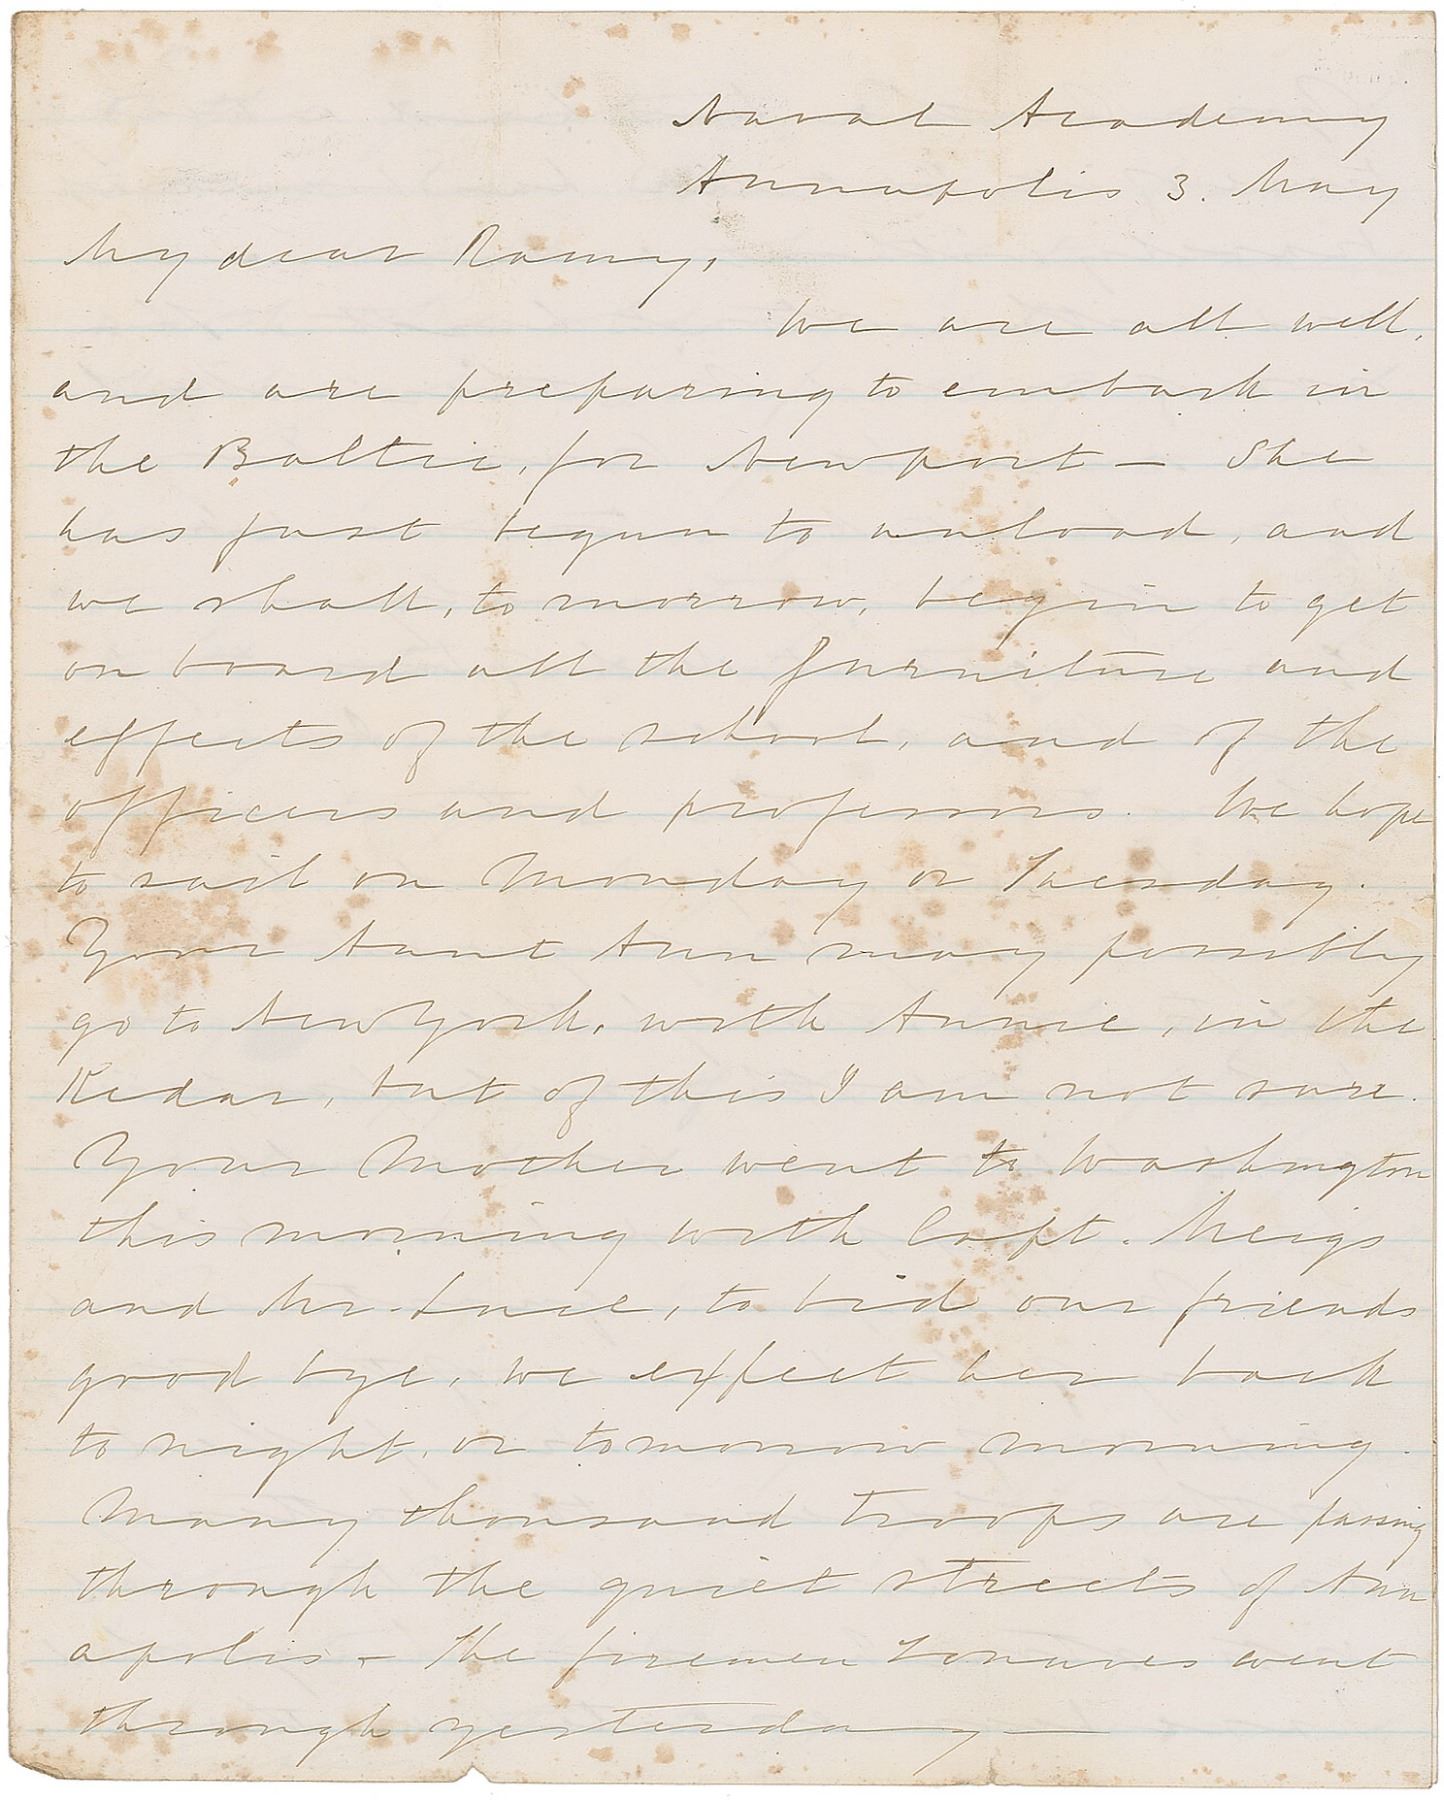 Naval Academy
Annapolis 3. May
My dear Romy,
We are all well,
and are preparing to embark in
the Baltic, for Newport — She
has just begun to unload, and
we shall, to morrow, begin to get
on board all the furniture and
effects of the school, and of the
officers and professors. We hope
to sail on Monday or Tuesday.
Your Aunt Ann may possibly
go to New York, with Annie, in the
Kedar, but of this I am not sure.
Your Mother went to Washington
this morning with Capt. Meigs
and Mr. Luce, to bid our friends
good bye, we expect her back
to night, or tomorrow morning.
Many thousand troops are passing
through the quiet streets of Ann
apolis — The firemen Zouaves went
through yesterday —